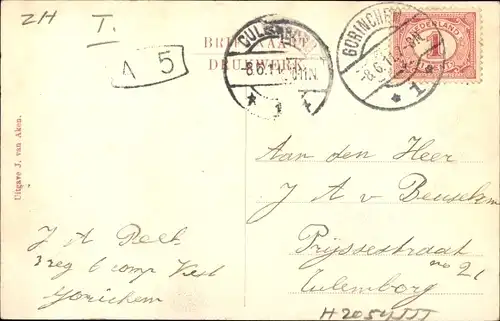 ZH
T.
A 5
BRIEFKAART
DRUKWERK
CULEMBORG
8.6.11
GORINCHEM
8.6.11
1
NEDERLAND
1
CENT
Uitgave J. van Aken.
Aan den Heer
J A v Beusekom
Prijssestraat
no 21
Culemborg
J A
3 reg 6 comp Vest
Gorichem
H2054III